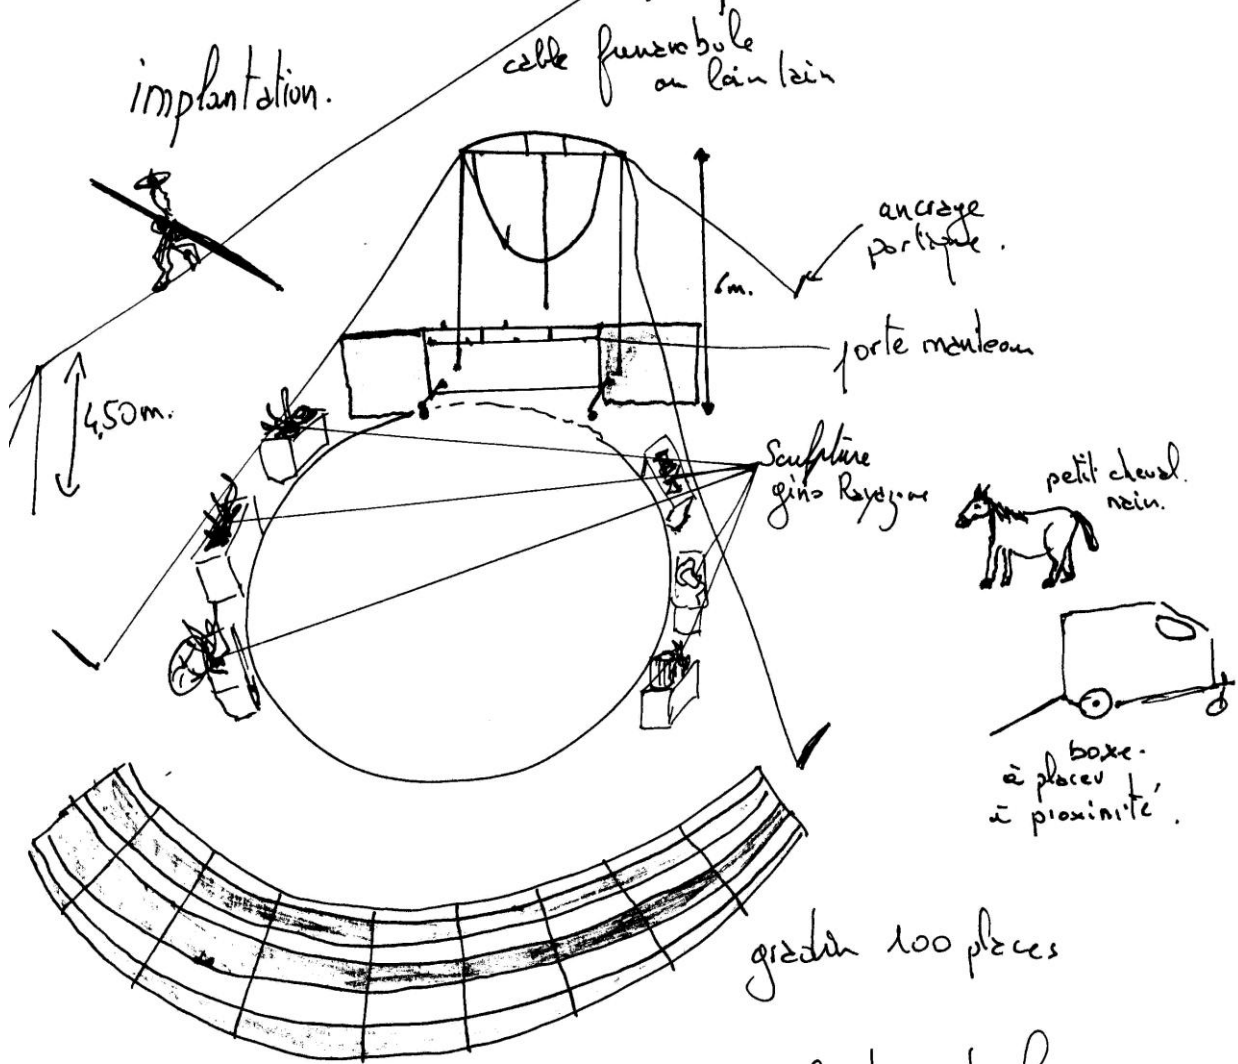 implantation.
cable funambule
au lointain
ancrage
portique.
6m.
porte manteau
4,50m.
Sculpture
gino
petit cheval
nain.
boxe.
à placer
à proximité.
gradin 100 places